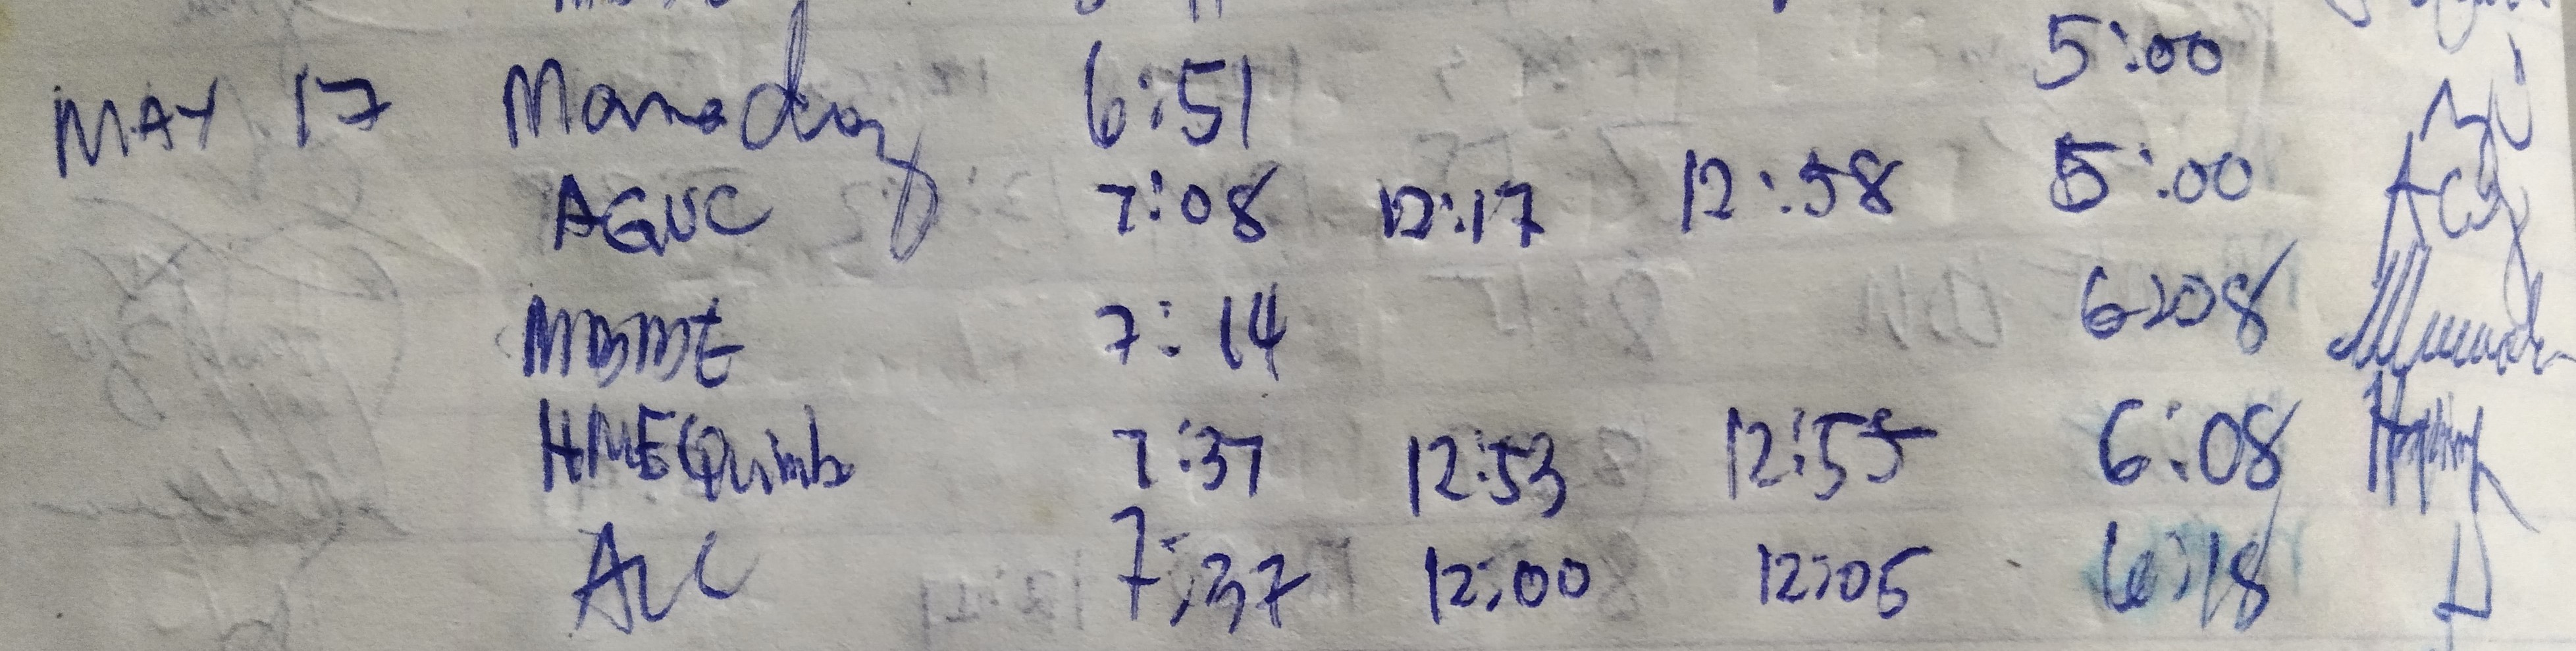 MAY 17 6:51 5:00
AGNC 7:08 12:17 12:58 5:00
MBMT 7:14 6:08
HMEQuimb 7:37 12:53 12:55 6:08
ALC 7:37 12:00 12:05 6:18